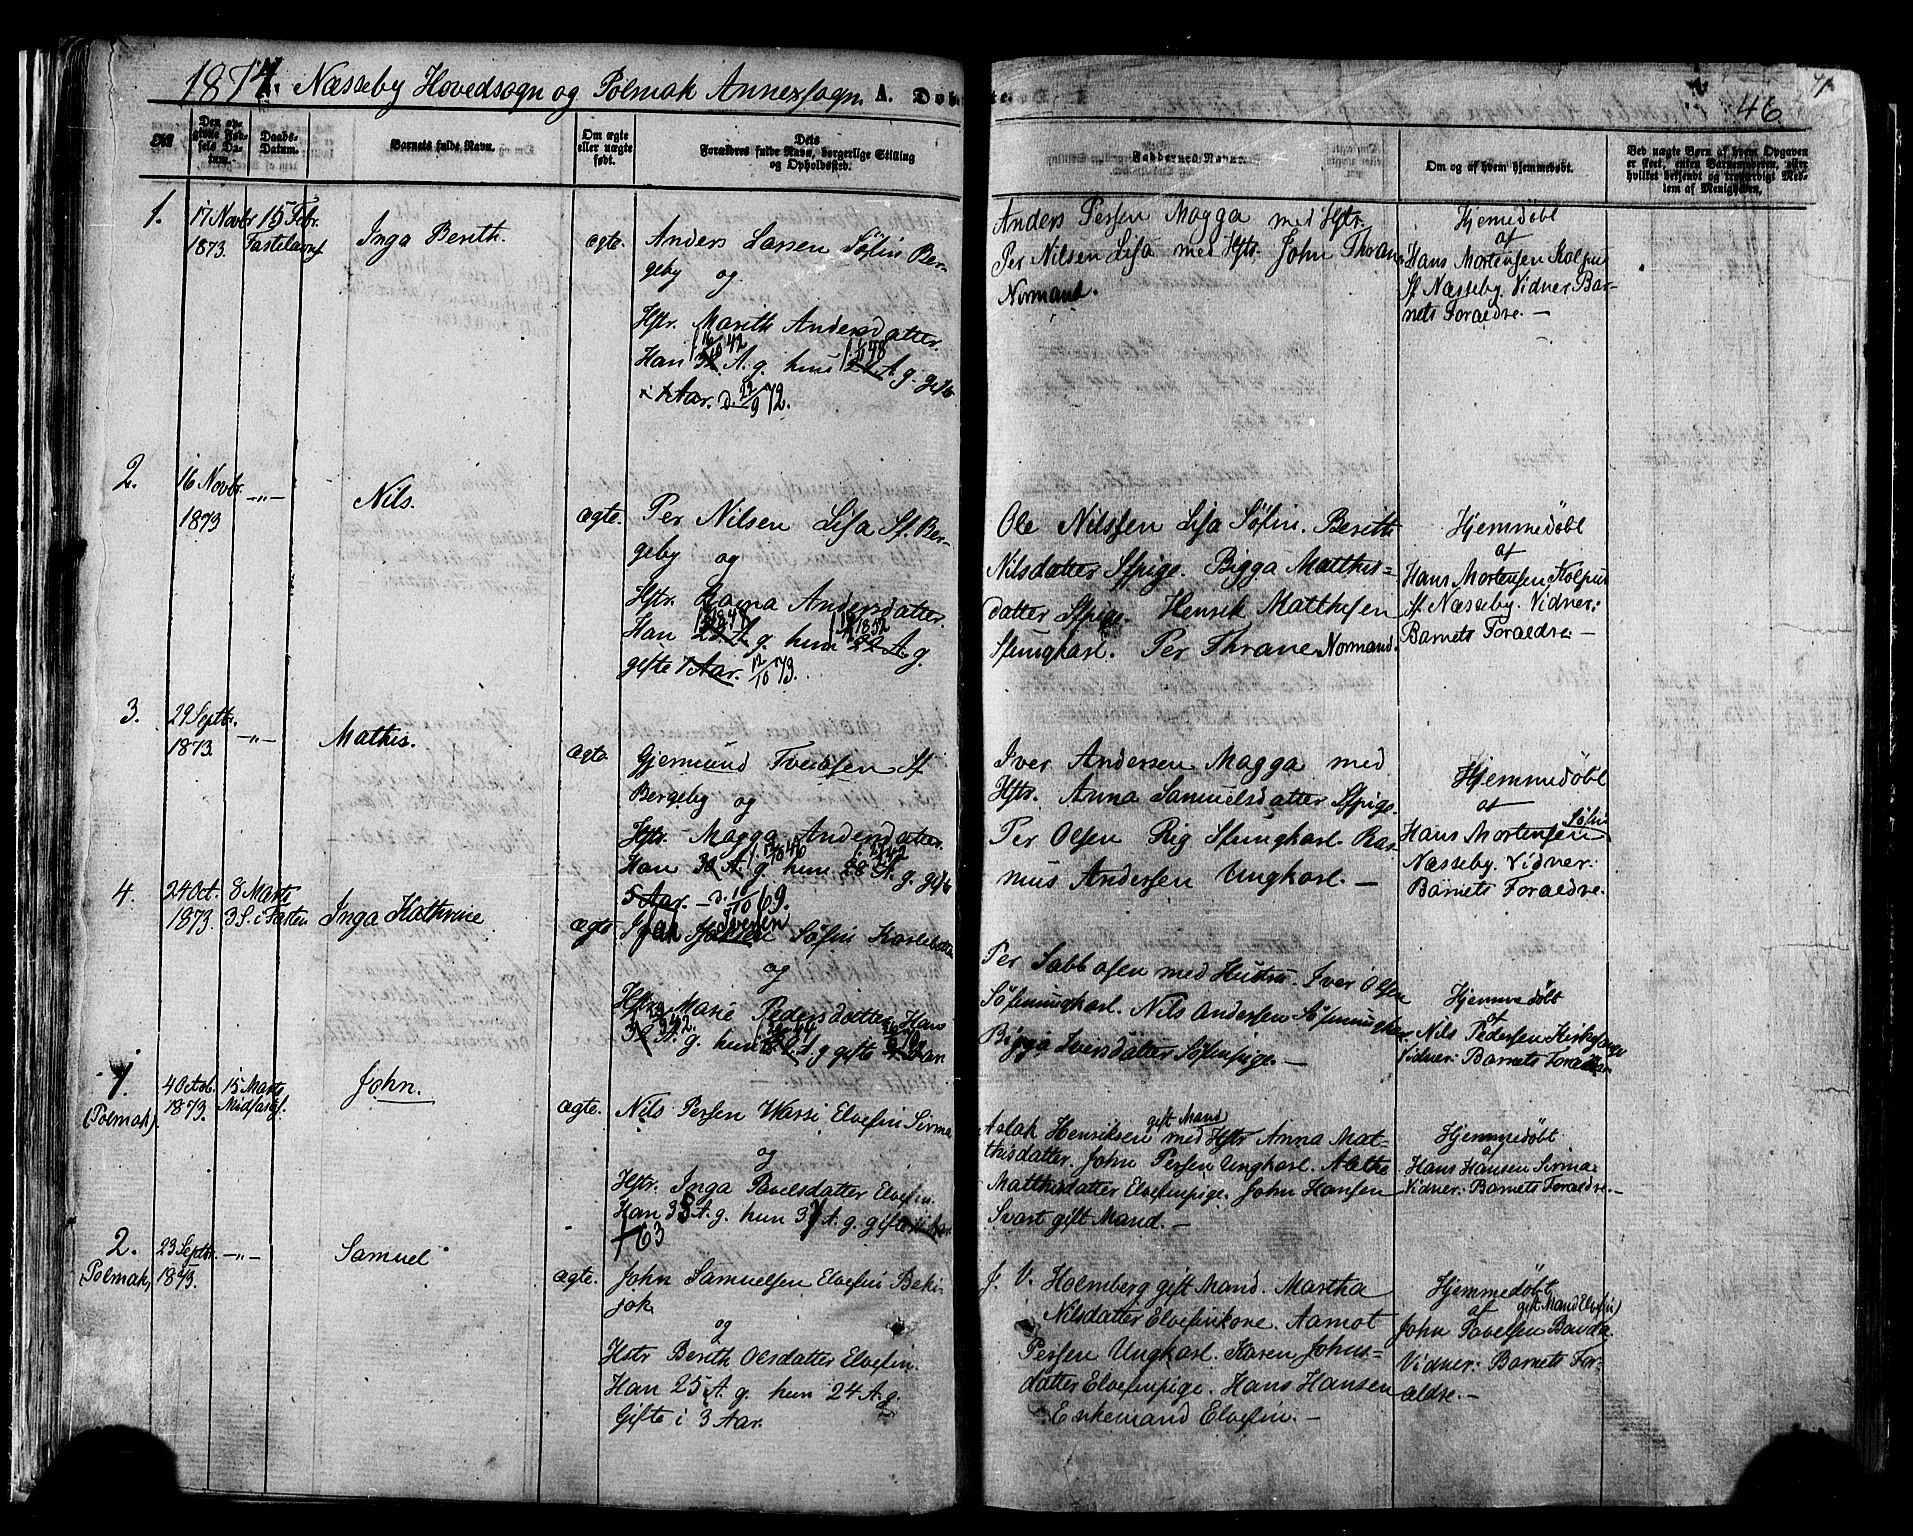 1874. Næsseby Hovedsogn og Polmak Annexsogn. A. Døb
46
№
Den opgivne Fødsels Datum.
Daabs-Datum.
Barnets fulde Navn.
Om ægte eller uægte født.
Dets
Forældres fulde Navn, borgerlige Stilling
og Opholdssted.
Faddernes Navn.
Om og af hvem hjemmedøbt.
Ved uægte Børn af hvem Opgaven
er skeet, enten Barnemoderen, eller
hvilket bekjendt og troværdigt Medlem
af Menigheden.
1.
17 Novbr
1873.
15 Febr.
Fastelavns
Inga Berith.
ægte.
Anders Larsen Søfin Ber-
geby og
Hstr. Marith Andersdatter.
Han A. g. hun A. g. gifte
Aar. d. 29/9 72.
Anders Persen Magga med Hstr.
Per Nilsen Lisa med Hstr. John Thrane
Normand.
Hjemedøbt
af
Hans Mortensen Kolpus
Sf Næsseby. Vidner Bar-
nets Foraldre. —
2.
16 Novbr.
1873
-"-
Nils.
ægte.
Per Nilsen Lisa Sf. Ber-
geby og
Hstr. Ragna Andersdatter.
Han 22 A. g. hun 22 A. g
gifte 1 Aar. 12/10 73.
Ole Nilssen Lisa Søfin. Berith
Nilsdatter Sfpige. Bigga Matthis-
datter Sfpige. Henrik Matthisen
Sfungkarl. Per Thrane Normand.
Hjemmedøbt
af
Hans Mortensen Kolpus
Sf Næsseby. Vidner:
Barnets Foraeldre. —
3.
29 Septbr.
1873.
-"-
Mathis.
ægte
Gjermund Tveitsen Sf
Bergeby og
Hstr. Magga Andersdatter
Han A. g. hun A. g. gifte
5 Aar. — d. 69.
Iver Andersen Magga med
Hstr. Anna Samuelsdatter Sfpige.
Per Olsen Rig Sfungkarl. Ras-
mus Andersen Ungkarl. —
Hjemmedøbt
af
Søfin
Hans Mortensen
Næsseby. Vidner:
Barnets Foraeldre.
4.
24 Oct.
1873.
8 Marts
3 S. i Fasten
Inga Kathrine
ægte
Iversen
Søfin Karlebotn
og
Hstr. Marie Pedersdatter. Han
A. g. hun A. g gifte Aar.
Per Sabbasen med Hustru. Iver Olsen
Søfinungkarl. Nils Andersen Søfinungkar.
Bigga Iversdatter Søfinpige. —
Hjemmedøbt
af
Nils Pedersen Kirkesanger
Vidner: Barnets Foraeldre
1.
(Polmak)
4 Octob.
1873.
15 Marts
Midfastes.
John.
ægte.
Nils Persen Wassi Elvefin Sirma
og
Hstr. Inga Povelsdatter Elvefin.
Han 35 A. g. hun 37 A. g. gifte
63
gift Mand
Aslak Henriksen med Hstr Anna Mat-
thisdatter. John Persen Ungkarl. Alethe
Matthisdatter Elvefinpige. John Hansen
Svart gift Mand. —
Hjemmedøbt
af
Hans Hansen Sirma
Vidner: Barnets Foraeldre. —
2.
(Polmak)
23 Septbr.
1873.
-"-
Samuel
ægte.
John Samuelsen Elvefin Beki-
jok
og
Hstr Berith Olsdatter Elvefin.
Han 25 A. g. hun 24 A. g.
Gifte i 3 Aar.
J. V. Holmberg gift Mand. Martha
Nilsdatter Elvefinkone. Aamot
Persen Ungkarl. Karen Johns-
datter Elvefinpige. Hans Hansen
Enkemand Elvefin. —
Hjemmedøbt
af gift Mand Elvefin)
John Povelsen Bauda.
Vidner: Barnets For-
ældre. —